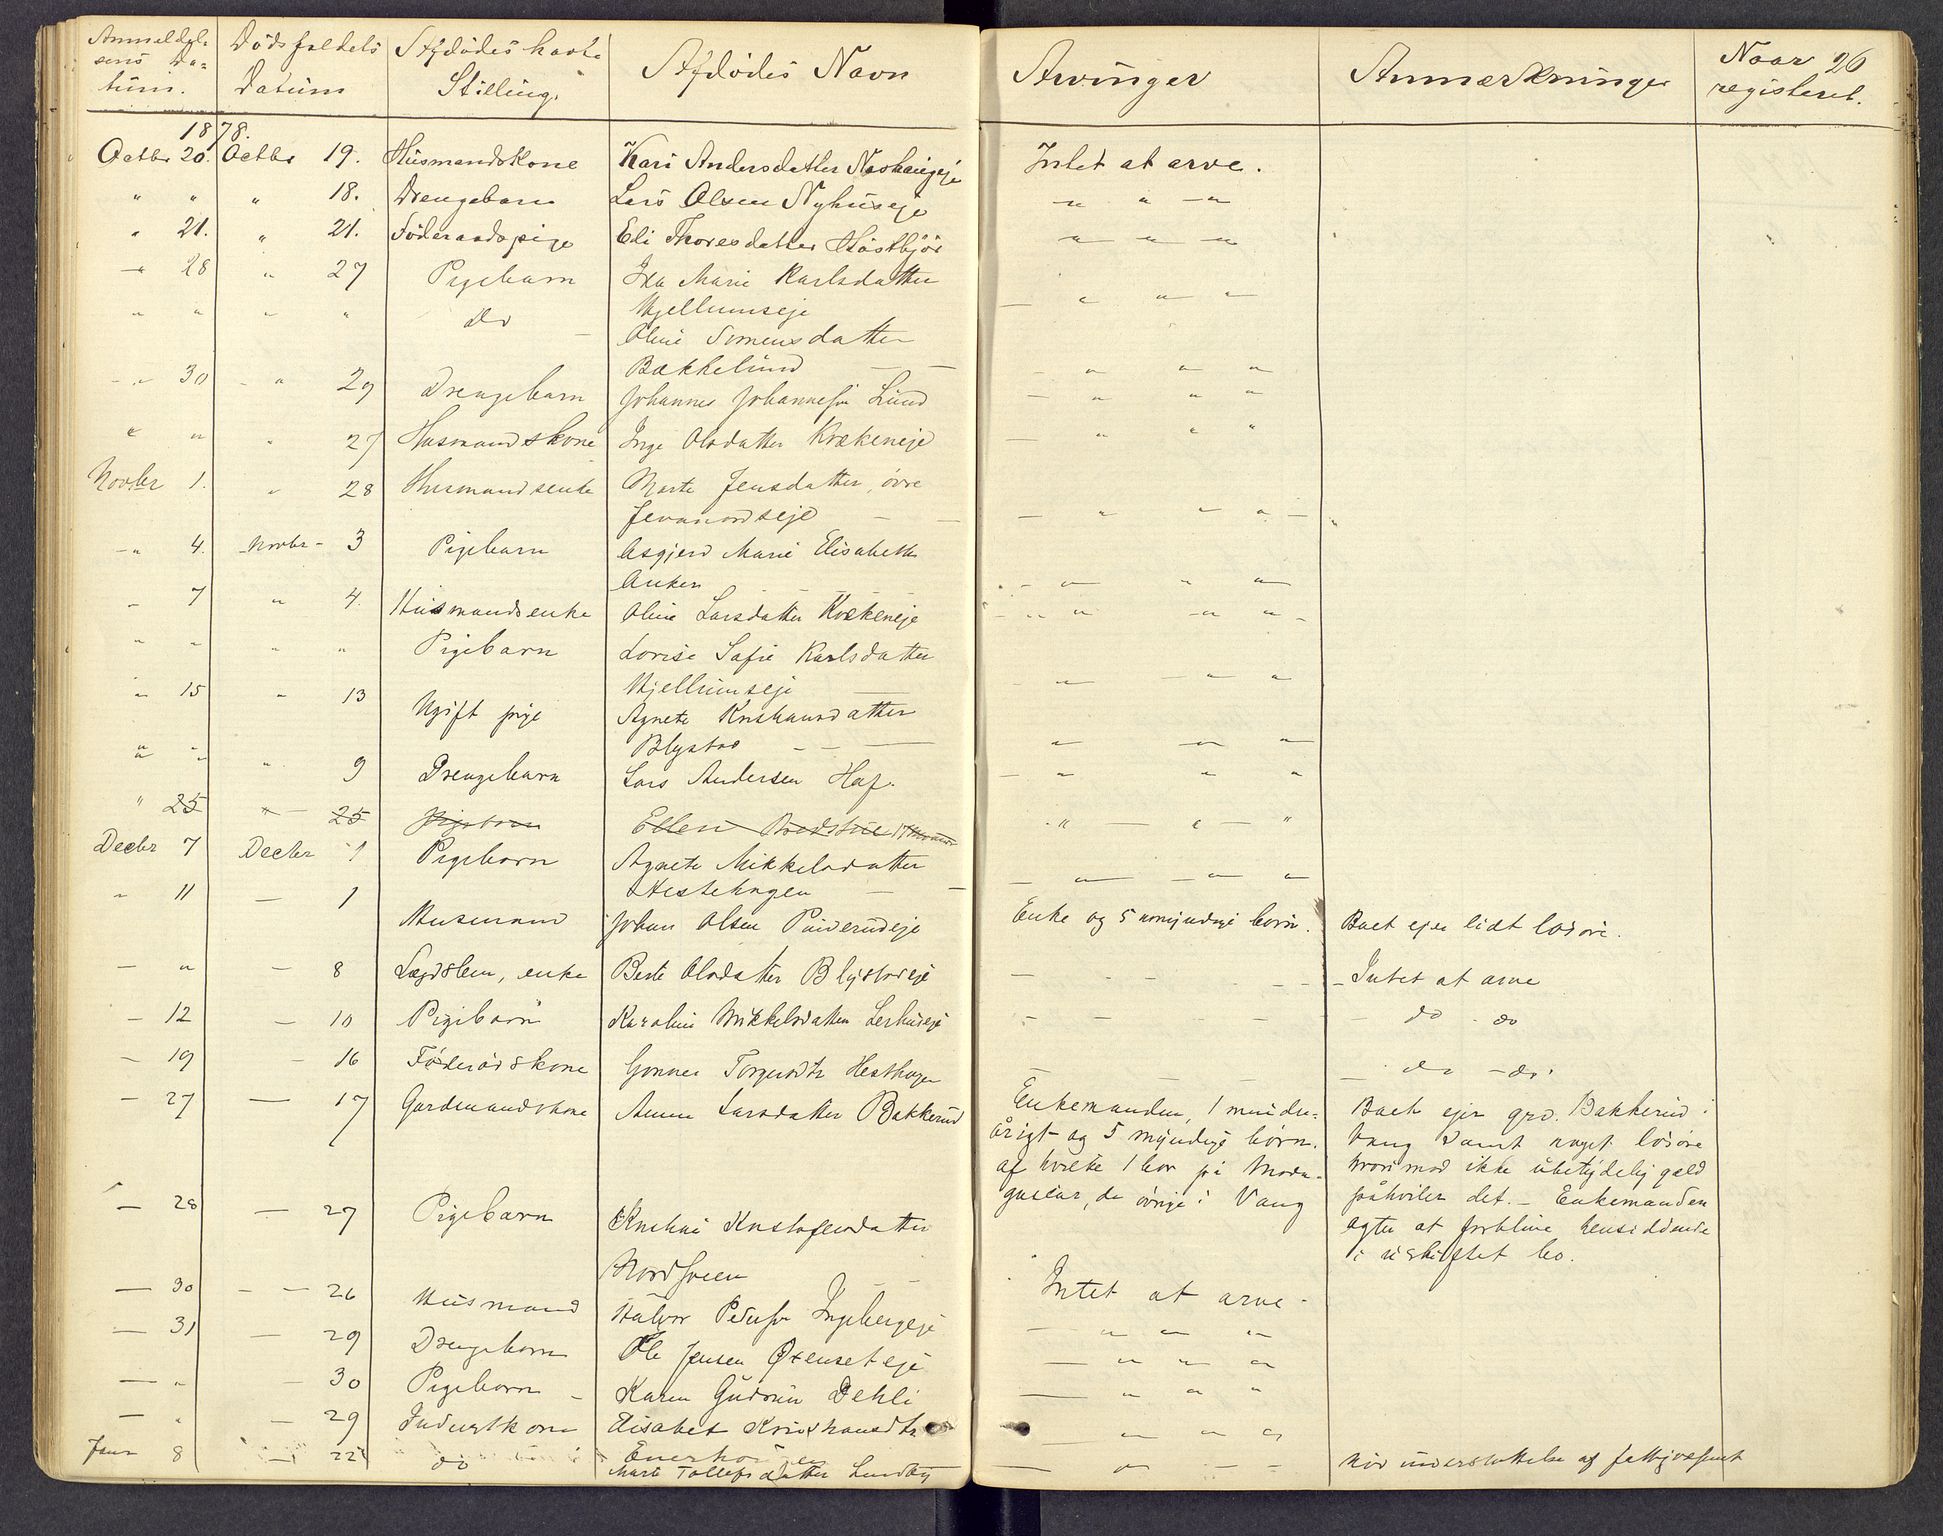 Anmeldel- Dødsfaldets Afdødes havte Afdødes Navn Arvinger Anmærkninger Naar 26
sens Da- Datum Stilling. registeret.
tum.
1878.
Octbr 20. Octbr 19. Husmandskone Kari Andersdatter Intet at arve.
" " " 18. Drengebarn Lars Olsen Nyhuseje " " "
" 21. " 21. Föderaadspige Eli Thoresdatter Høstbjör " " "
" 28 " 27 Pigebarn Ida Marie Karlsdatter
Hjellumseje " " "
" " " " do Oline Simensdatter
Bækkelund " " "
" 30 " 29 Drengebarn Johannes Johannesen Lund " " "
" " " 27 Husmandskone Inge Olsdatter Kvækeneje " " "
Novbr 1. " 28 Husmandsenke Marte Jensdatter, övre
Jevanordseje " " "
" 4. Novbr 3 Pigebarn Asgjerd Marie Elisabeth
Anker " " "
" 7 " 4. Husmandsenke Oline Larsdatter Kvækeneje " " "
" " " " Pigebarn Lovise Safie Karlsdatter
Hjellumseje " " "
" 15 " 13 Ugift pige Agnete Kristiansdatter
Blystad " " "
" " " 9 Drengebarn Lars Andersen Haf. " " "
" 25 " 25 Pigebarn Ellen " " "
Decbr 7 Decbr 1 Pigebarn Agnete Mikkelsdatter
Hestehagen " " "
" 11 — 1 Husmand Johan Olsen Enke og 5 umyndige børn. Boet ejer lidt løsøre.
— " — 8 Lægdslem, enke Berte Olsdatter Blystadeje — Intet at arve
— 12 — 10 Pigebarn Karoline Mikkelsdatter Lerhuseje — do - do
— 19 — 16 Föderådskone Gonner Torgersdtr Hesthagen — do - do.
— 27 — 17 Gardmandskone Anne Larsdatter Bakkerud Enkemanden, 1 mindre- Boet ejer grd. Bakkerud i
årigt og 5 myndige børn. Vang samt noget løsøre
af hvilke 1 bor på Mada- hvorimod ikke ubetydelig gæld
gascar, de øvrige i Vang påhviler det. — Enkemanden
agter at forblive hensiddende
i uskiftet bo.
— 28 — 27 Pigebarn Kristofersdatter
Nordhveen Intet at arve
— 30 — 26 Husmand Halvor Pedersen Ingebergeje " " "
— 31 — 29 Drengebarn Ole Jensen Øxenseteje " " "
— " — 30 Pigebarn Karen Gudrun Dehli " " "
— " — 29 Inderstkone Elisabet Kristiansdtr
Enerhougen " " "
Janr 8 — 22 do Mari Tollefsdatter Lundby — " — — nöd understøttelse af fattigvæsenet